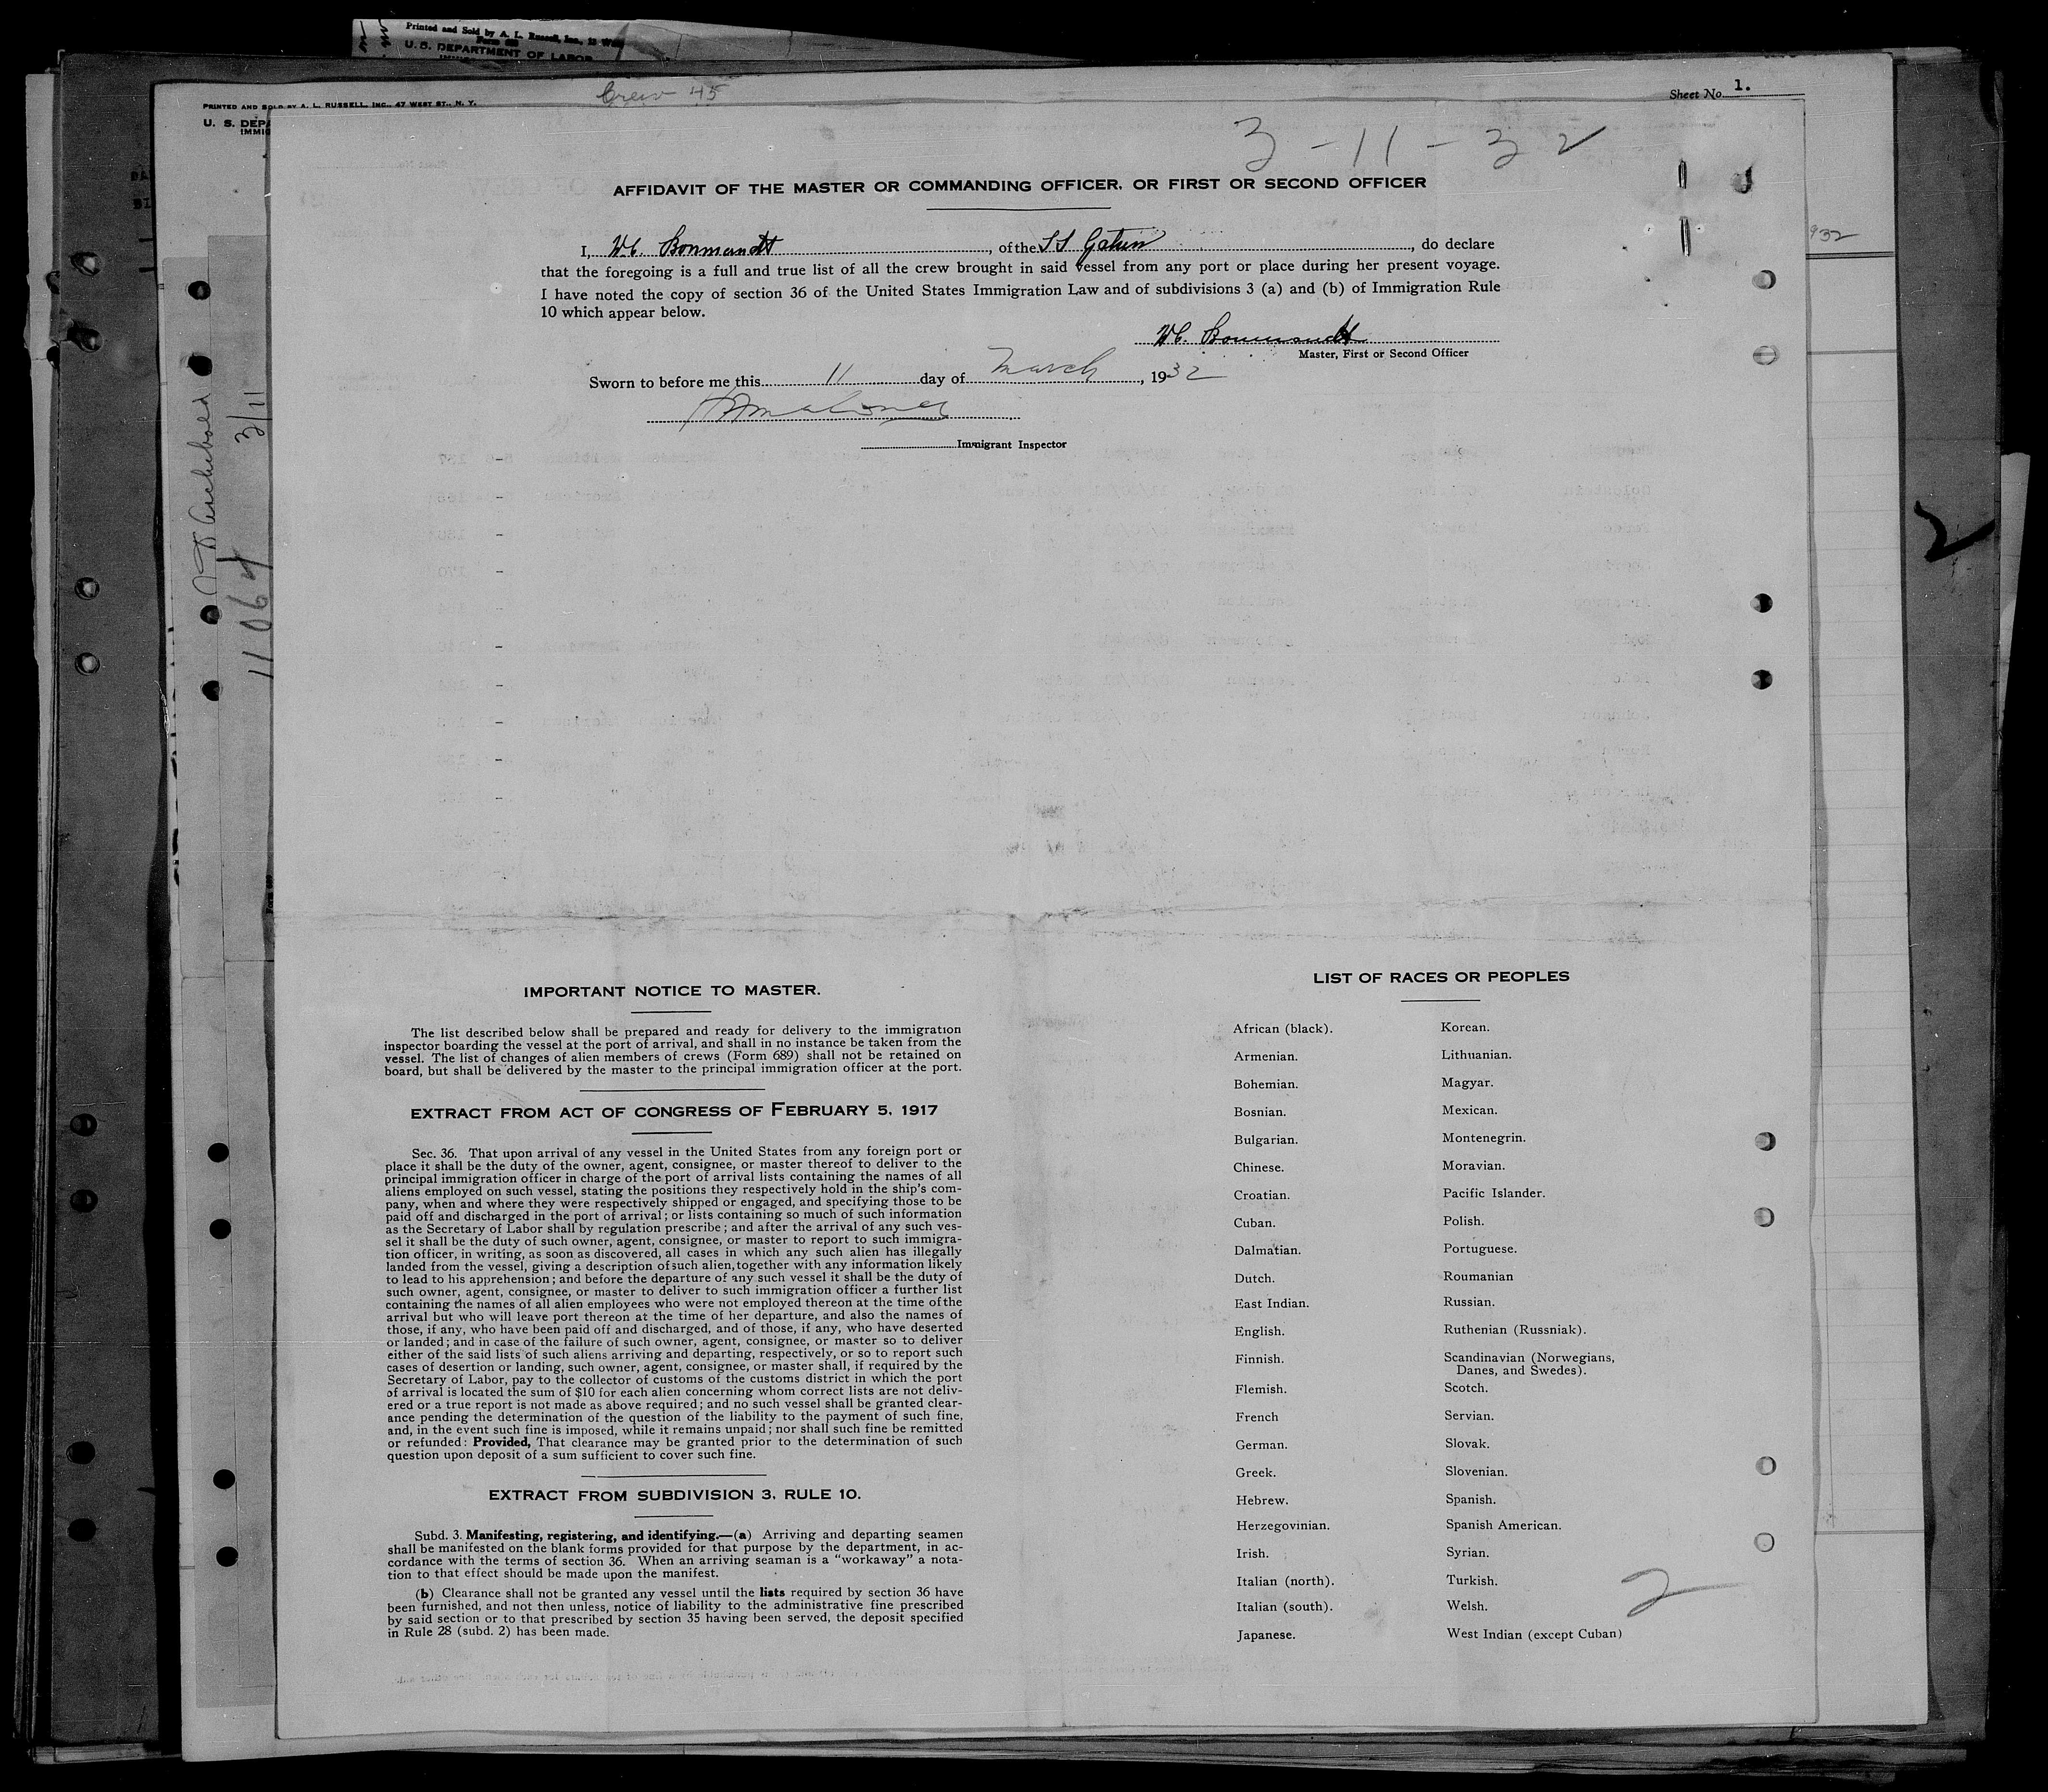 Printed and Sold by A. L. Russell, Inc.,
U. S. DEPARTMENT OF LABOR
Crew 45
PRINTED AND SOLD BY A. L. RUSSELL, INC., 47 WEST ST., N. Y.
Sheet No. 1.
U. S. DEPA
IMMIG
3-11-32
AFFIDAVIT OF THE MASTER OR COMMANDING OFFICER, OR FIRST OR SECOND OFFICER
I, W.C. Bonmandt, of the SS Gatun, do declare
that the foregoing is a full and true list of all the crew brought in said vessel from any port or place during her present voyage.
I have noted the copy of section 36 of the United States Immigration Law and of subdivisions 3 (a) and (b) of Immigration Rule
10 which appear below.
Master, First or Second Officer
Sworn to before me this 11 day of March, 1932
Immigrant Inspector
3/11
11064
932
2
IMPORTANT NOTICE TO MASTER.
The list described below shall be prepared and ready for delivery to the immigration
inspector boarding the vessel at the port of arrival, and shall in no instance be taken from the
vessel. The list of changes of alien members of crews (Form 689) shall not be retained on
board, but shall be delivered by the master to the principal immigration officer at the port.
EXTRACT FROM ACT OF CONGRESS OF FEBRUARY 5, 1917
Sec. 36. That upon arrival of any vessel in the United States from any foreign port or
place it shall be the duty of the owner, agent, consignee, or master thereof to deliver to the
principal immigration officer in charge of the port of arrival lists containing the names of all
aliens employed on such vessel, stating the positions they respectively hold in the ship's com-
pany, when and where they were respectively shipped or engaged, and specifying those to be
paid off and discharged in the port of arrival; or lists containing so much of such information
as the Secretary of Labor shall by regulation prescribe; and after the arrival of any such ves-
sel it shall be the duty of such owner, agent, consignee, or master to report to such immigra-
tion officer, in writing, as soon as discovered, all cases in which any such alien has illegally
landed from the vessel, giving a description of such alien, together with any information likely
to lead to his apprehension; and before the departure of any such vessel it shall be the duty of
such owner, agent, consignee, or master to deliver to such immigration officer a further list
containing the names of all alien employees who were not employed thereon at the time of the
arrival but who will leave port thereon at the time of her departure, and also the names of
those, if any, who have been paid off and discharged, and of those, if any, who have deserted
or landed; and in case of the failure of such owner, agent, consignee, or master so to deliver
either of the said lists of such aliens arriving and departing, respectively, or so to report such
cases of desertion or landing, such owner, agent, consignee, or master shall, if required by the
Secretary of Labor, pay to the collector of customs of the customs district in which the port
of arrival is located the sum of $10 for each alien concerning whom correct lists are not deliv-
ered or a true report is not made as above required; and no such vessel shall be granted clear-
ance pending the determination of the question of the liability to the payment of such fine,
and, in the event such fine is imposed, while it remains unpaid; nor shall such fine be remitted
or refunded: Provided, That clearance may be granted prior to the determination of such
question upon deposit of a sum sufficient to cover such fine.
EXTRACT FROM SUBDIVISION 3, RULE 10.
Subd. 3. Manifesting, registering, and identifying.—(a) Arriving and departing seamen
shall be manifested on the blank forms provided for that purpose by the department, in ac-
cordance with the terms of section 36. When an arriving seaman is a "workaway" a nota-
tion to that effect should be made upon the manifest.
(b) Clearance shall not be granted any vessel until the lists required by section 36 have
been furnished, and not then unless, notice of liability to the administrative fine prescribed
by said section or to that prescribed by section 35 having been served, the deposit specified
in Rule 28 (subd. 2) has been made.
LIST OF RACES OR PEOPLES
African (black).
Armenian.
Bohemian.
Bosnian.
Bulgarian.
Chinese.
Croatian.
Cuban.
Dalmatian.
Dutch.
East Indian.
English.
Finnish.
Flemish.
French
German.
Greek.
Hebrew.
Herzegovinian.
Irish.
Italian (north).
Italian (south).
Japanese.
Korean.
Lithuanian.
Magyar.
Mexican.
Montenegrin.
Moravian.
Pacific Islander.
Polish.
Portuguese.
Roumanian
Russian.
Ruthenian (Russniak).
Scandinavian (Norwegians,
Danes, and Swedes).
Scotch.
Servian.
Slovak.
Slovenian.
Spanish.
Spanish American.
Syrian.
Turkish.
Welsh.
West Indian (except Cuban)
2